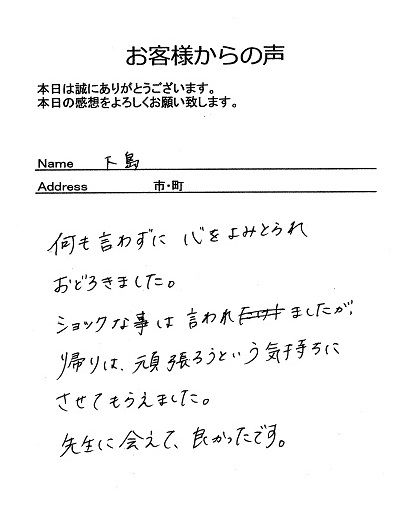 お客様からの声
本日は誠にありがとうございます。
本日の感想をよろしくお願い致します。
Name 下島
Address 市・町
何も言わずに 心をよみとられ
おどろきました。
ショックな事は 言われましたが、
帰りは、頑張ろうという気持ちに
させてもらえました。
先生に会えて、良かったです。